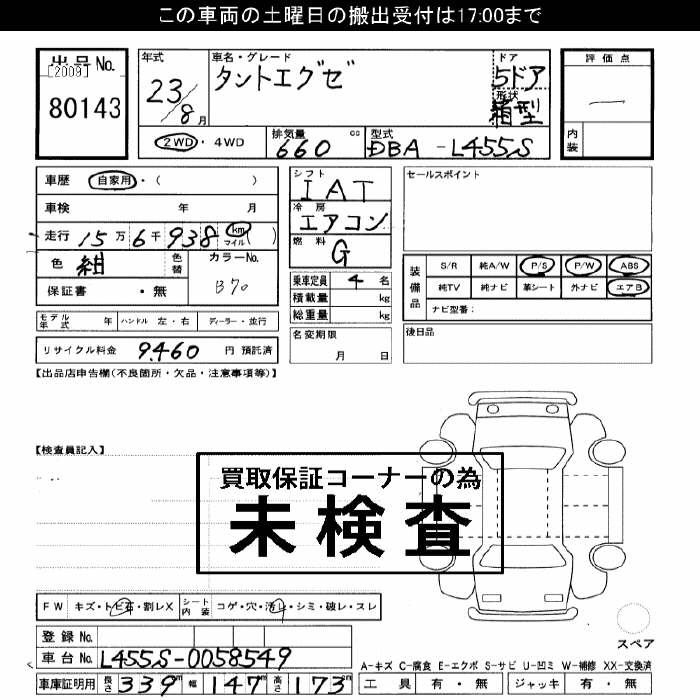 この車両の土曜日の搬出受付は17:00まで
出品No. [2009] 80143
年式 23/8月
車名・グレード タントエグゼ
ドア 5ドア
形状 箱型
評価点 —
内装
2WD・4WD
排気量 660 cc
型式 DBA-L455S
車歴 自家用・( )
車検 年 月
走行 15万6千938 km マイル ( )
色 紺 色替 カラーNo. B70
保証書 ・無
シフト IAT
冷房 エアコン
燃料 G
乗車定員 4名
積載量 kg
総重量 kg
セールスポイント
装備品 S/R 純A/W P/S P/W ABS
純TV 純ナビ 革シート 外ナビ エアB
ナビ型番:
モデル年式 年 ハンドル 左・右 ディーラー・並行
名変期限 月 日
後日品
リサイクル料金 9,460 円 預託済
【出品店申告欄(不良箇所・欠品・注意事項等)】
【検査員記入】
買取保証コーナーの為
未検査
FW キズ・トビ石・割レX シート内装 コゲ・穴・汚レ・シミ・破レ・スレ
スペア
登録No.
車台No. L455S-0058549
A-キズ C-腐食 E-エクボ S-サビ U-凹ミ W-補修 XX-交換済
車庫証明用 長さ 339m 幅 147m 高さ 173cm
工具 有・無 ジャッキ 有・無